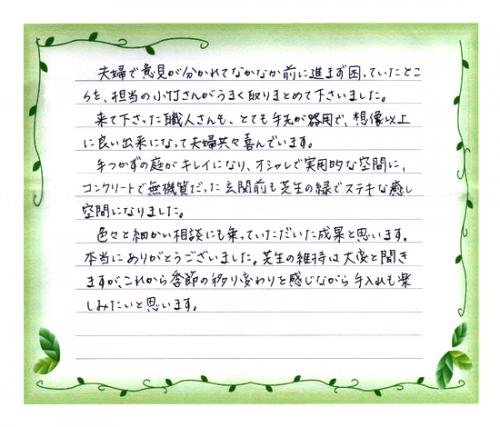 夫婦で意見が分かれてなかなか前に進まず困っていたとこ
ろを、担当の小竹さんがうまく取りまとめて下さいました。
来て下さった職人さんも、とても手先が器用で、想像以上
に良い出来になって夫婦共々喜んでいます。
手つかずの庭がキレイになり、オシャレで実用的な空間に、
コンクリートで無機質だった玄関前も芝生の緑でステキな癒し
空間になりました。
色々と細かい相談にも乗っていただいた成果と思います。
本当にありがとうございました。芝生の維持は大変と聞き
ますが、これから季節の移り変わりを感じながら手入れも楽
しみたいと思います。